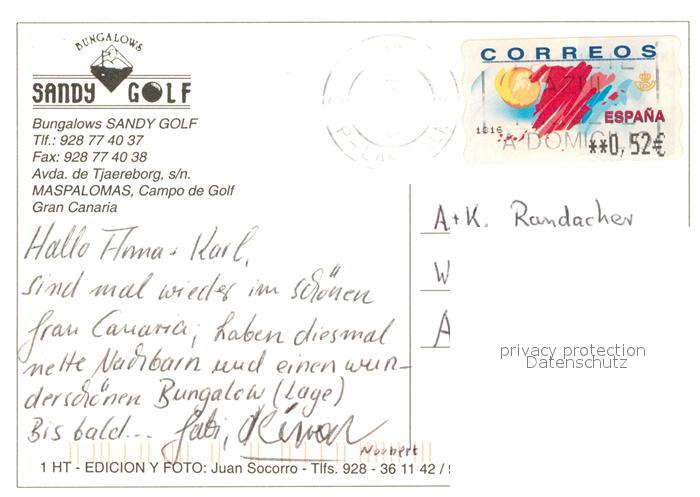 BUNGALOWS
SANDY GOLF
Bungalows SANDY GOLF
Tlf.: 928 77 40 37
Fax: 928 77 40 38
Avda. de Tjaereborg, s/n.
MASPALOMAS, Campo de Golf
Gran Canaria
CORREOS
ESPAÑA
1016
**0,52€
A DOMICILIO
A+K. Randacher
W
A
privacy protection
Datenschutz
Hallo Anna + Karl,
sind mal wieder im schönen
Gran Canaria; haben diesmal
nette Nachbarn und einen wun-
derschönen Bungalow (Lage)
Bis bald... Gabi,
Norbert
1 HT - EDICION Y FOTO: Juan Socorro - Tlfs. 928 - 36 11 42 /